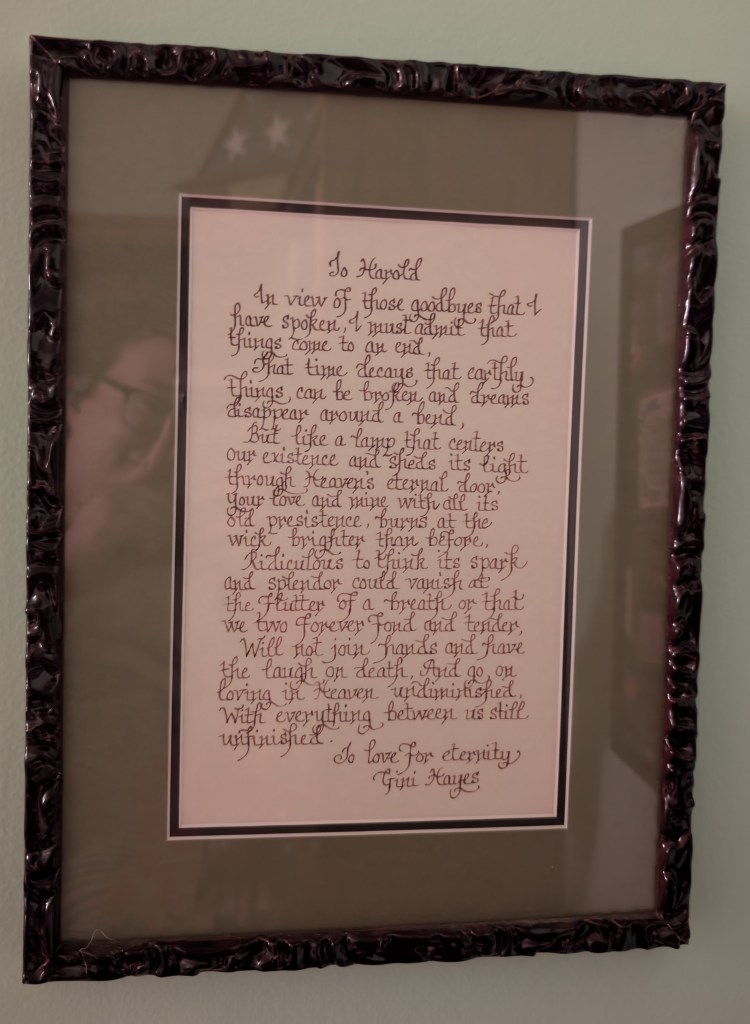 To Harold
In view of those goodbyes that I
have spoken, I must admit that
things come to an end,
That time decays that earthly
things, can be broken and dreams
disappear around a bend,
But like a lamp that centers
our existence and sheds its light
through Heaven's eternal door,
your love and mine with all its
old presistence, burns at the
wick brighter than before,
Ridiculous to think its spark
and splendor could vanish at
the flutter of a breath or that
we two forever fond and tender,
Will not join hands and have
the laugh on death, And go on
loving in Heaven undiminished,
With everything between us still
unfinished.
To love for eternity
Gini Hayes